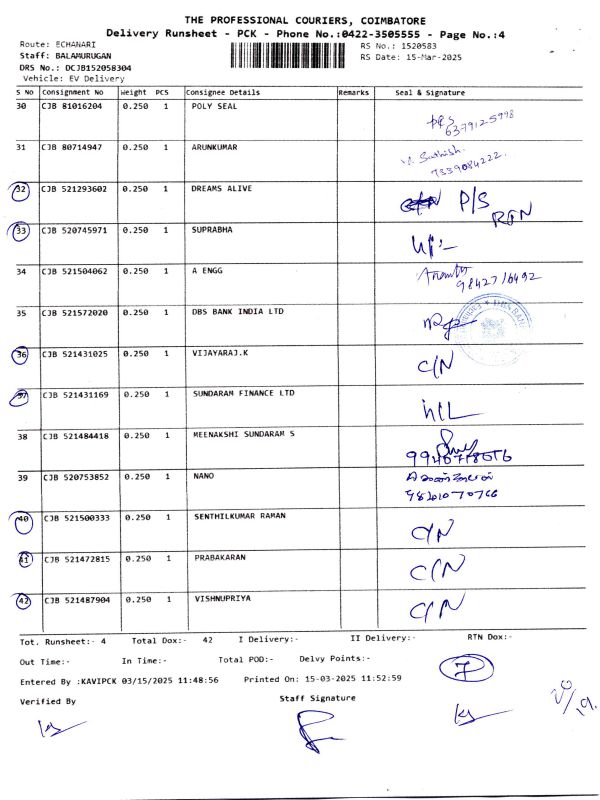 THE PROFESSIONAL COURIERS, COIMBATORE
Delivery Runsheet - PCK - Phone No.:0422-3505555 - Page No.:4
Route: ECHANARI RS No.: 1520583
Staff: BALAMURUGAN RS Date: 15-Mar-2025
DRS No.: DCJB152058304
Vehicle: EV Delivery
S No Consignment No Weight PCS Consignee Details Remarks Seal & Signature
30 CJB 81016204 0.250 1 POLY SEAL
6379125998
31 CJB 80714947 0.250 1 ARUNKUMAR
7339084222.
32 CJB 521293602 0.250 1 DREAMS ALIVE P/S
RTN
33 CJB 520745971 0.250 1 SUPRABHA
34 CJB 521504062 0.250 1 A ENGG
35 CJB 521572020 0.250 1 DBS BANK INDIA LTD
36 CJB 521431025 0.250 1 VIJAYARAJ.K C/N
37 CJB 521431169 0.250 1 SUNDARAM FINANCE LTD
38 CJB 521484418 0.250 1 MEENAKSHI SUNDARAM S
39 CJB 520753852 0.250 1 NANO
40 CJB 521500333 0.250 1 SENTHILKUMAR RAMAN C/N
41 CJB 521472815 0.250 1 PRABAKARAN C/N
42 CJB 521487904 0.250 1 VISHNUPRIYA C/N
Tot. Runsheet:- 4 Total Dox:- 42 I Delivery:- II Delivery:- RTN Dox:-
Out Time:- In Time:- Total POD:- Delvy Points:-
7
Entered By :KAVIPCK 03/15/2025 11:48:56 Printed On: 15-03-2025 11:52:59
Verified By Staff Signature